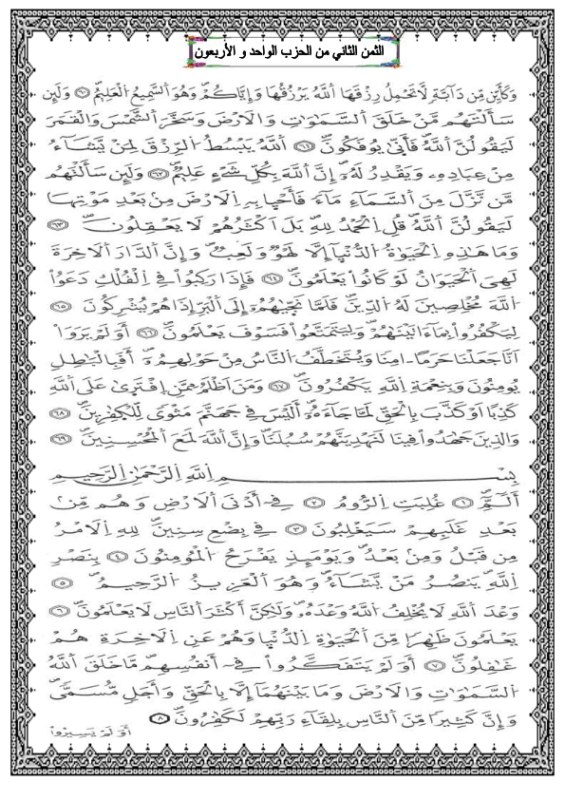 الثمن الثاني من الحزب الواحد و الأربعون
وَكَأَيِّن مِّن دَآبَّةٍ لَّا تَحْمِلُ رِزْقَهَا اَ۬للَّهُ يَرْزُقُهَا وَإِيَّاكُمْ وَهُوَ اَ۬لسَّمِيعُ اُ۬لْعَلِيمُ ٦٠ وَلَئِن
سَأَلْتَهُم مَّنْ خَلَقَ اَ۬لسَّمَٰوَٰتِ وَالَارْضَ وَسَخَّرَ اَ۬لشَّمْسَ وَالْقَمَرَ
لَيَقُولُنَّ اَ۬للَّهُ فَأَنّ۪يٰ يُوفَكُونَ ٦١ اَ۬للَّهُ يَبْسُطُ اُ۬لرِّزْقَ لِمَنْ يَّشَآءُ
مِنْ عِبَادِهِۦ وَيَقْدِرُ لَهُۥٓ إِنَّ اَ۬للَّهَ بِكُلِّ شَےْءٍ عَلِيمٌ ٦٢ وَلَئِن سَأَلْتَهُم
مَّن نَّزَّلَ مِنَ اَ۬لسَّمَآءِ مَآءً فَأَحْي۪ا بِهِ اِ۬لَارْضَ مِنۢ بَعْدِ مَوْتِهَا
لَيَقُولُنَّ اَ۬للَّهُ قُلِ اِ۬لْحَمْدُ لِلهِ بَلَ اَكْثَرُهُمْ لَا يَعْقِلُونَ ٦٣
وَمَا هَٰذِهِ اِ۬لْحَيَوٰةُ اُ۬لدُّنْي۪آ إِلَّا لَهْوٌ وَلَعِبٌ وَإِنَّ اَ۬لدَّارَ اَ۬لَاخِرَةَ
لَهِيَ اَ۬لْحَيَوَانُ لَوْ كَانُواْ يَعْلَمُونَ ٦٤ فَإِذَا رَكِبُواْ فِے اِ۬لْفُلْكِ دَعَوُاْ
اُ۬للَّهَ مُخْلِصِينَ لَهُ اُ۬لدِّينَ فَلَمَّا نَجّ۪يٰهُمُۥٓ إِلَى اَ۬لْبَرِّ إِذَا هُمْ يُشْرِكُونَ ٦٥
لِيَكْفُرُواْ بِمَآ ءَاتَيْنَٰهُمْ وَلِيَتَمَتَّعُواْ فَسَوْفَ يَعْلَمُونَ ٦٦ أَوَلَمْ يَرَوَاْ
اَنَّا جَعَلْنَا حَرَماً اٰمِناً وَيُتَخَطَّفُ اُ۬لنَّاسُ مِنْ حَوْلِهِمُۥٓ أَفَبِالْبَٰطِلِ
يُومِنُونَ وَبِنِعْمَةِ اِ۬للَّهِ يَكْفُرُونَ ٦٧ وَمَنَ اَظْلَمُ مِمَّنِ اِ۪فْتَر۪يٰ عَلَى اَ۬للَّهِ
كَذِباً اَوْ كَذَّبَ بِالْحَقِّ لَمَّا جَآءَهُۥٓ أَلَيْسَ فِے جَهَنَّمَ مَثْوىً لِّلْكٰ۪فِرِينَ ٦٨
وَالذِينَ جَٰهَدُواْ فِينَا لَنَهْدِيَنَّهُمْ سُبُلَنَا وَإِنَّ اَ۬للَّهَ لَمَعَ اَ۬لْمُحْسِنِينَ ٦٩
بِسْمِ اِ۬للَّهِ اِ۬لرَّحْمَٰنِ اِ۬لرَّحِيمِ
أَلَٓمِّٓ ١ غُلِبَتِ اِ۬لرُّومُ ٢ فِےٓ أَدْنَى اَ۬لَارْضِ وَهُم مِّنۢ
بَعْدِ غَلَبِهِمْ سَيَغْلِبُونَ ٣ فِے بِضْعِ سِنِينَ لِلهِ اِ۬لَامْرُ
مِن قَبْلُ وَمِنۢ بَعْدُ وَيَوْمَئِذٍ يَفْرَحُ اُ۬لْمُومِنُونَ ٤ بِنَصْرِ
اِ۬للَّهِ يَنصُرُ مَنْ يَّشَآءُ وَهُوَ اَ۬لْعَزِيزُ اُ۬لرَّحِيمُ ٥
وَعْدَ اَ۬للَّهِ لَا يُخْلِفُ اُ۬للَّهُ وَعْدَهُۥ وَلَٰكِنَّ أَكْثَرَ اَ۬لنَّاسِ لَا يَعْلَمُونَ ٦
يَعْلَمُونَ ظَٰهِراً مِّنَ اَ۬لْحَيَوٰةِ اِ۬لدُّنْي۪ا وَهُمْ عَنِ اِ۬لَاخِرَةِ هُمْ
غَٰفِلُونَ ٧ أَوَلَمْ يَتَفَكَّرُواْ فِےٓ أَنفُسِهِم مَّا خَلَقَ اَ۬للَّهُ
اُ۬لسَّمَٰوَٰتِ وَالَارْضَ وَمَا بَيْنَهُمَآ إِلَّا بِالْحَقِّ وَأَجَلٍ مُّسَمّىً
وَإِنَّ كَثِيراً مِّنَ اَ۬لنَّاسِ بِلِقَآءِ رَبِّهِمْ لَكَٰفِرُونَ ٨
أَوَلَمْ يَسِيرُواْ